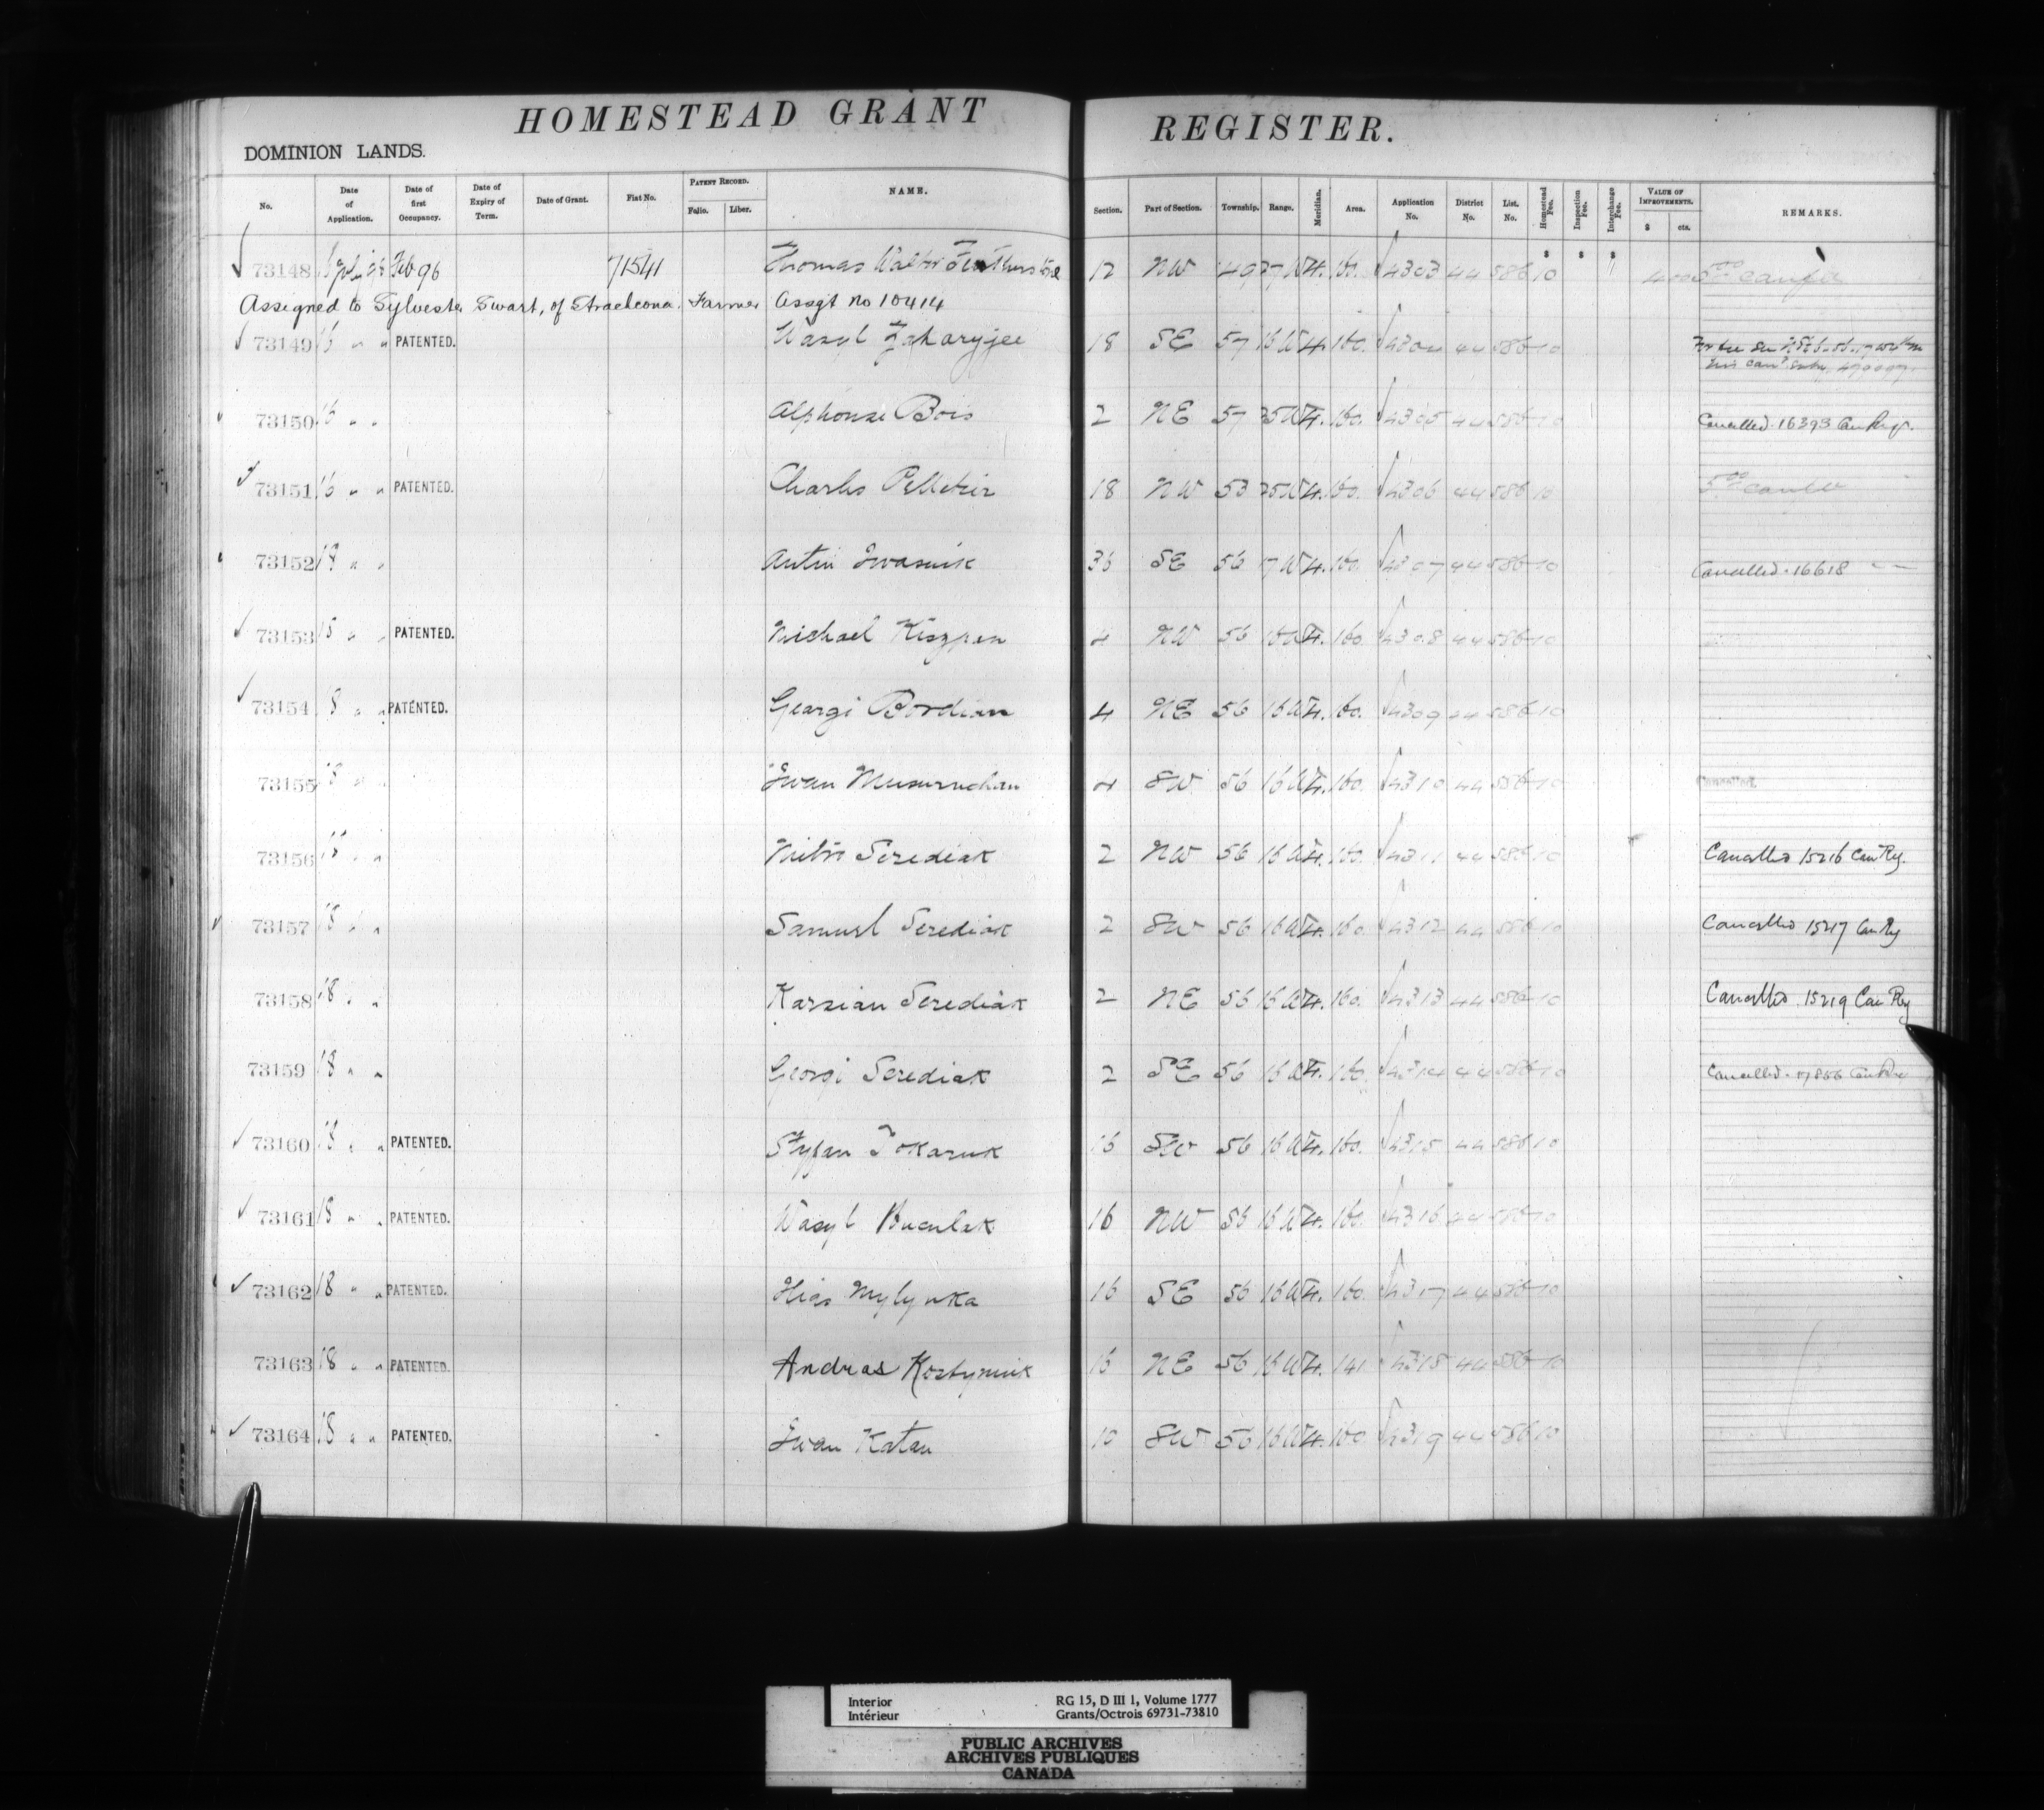 HOMESTEAD GRANT REGISTER.
DOMINION LANDS.
No. Date of Application. Date of first Occupancy. Date of Expiry of Term. Date of Grant. Fiat No. PATENT RECORD. Folio. Liber. NAME. Section. Part of Section. Township. Range. Meridian. Area. Application No. District No. List. No. Homestead Fee. Inspection Fee. Interchange Fee. VALUE OF IMPROVEMENTS. $ cts. REMARKS.
73148 Feb 96 71541 Thomas Walter 12 NW 49 27 W 4. 160. 4303 44 586 10
Assigned to Sylvester Swart, of Strathcona. Farmer Assgt no 10414
73149 16 " " PATENTED. Wasyl Zaharyjee 18 SE 57 16 W 4. 160. 4304 44 586 10
73150 16 " " Alphonse Bois 2 NE 57 25 W 4. 160. 4305 44 586 10 Cancelled. 16393 Can Reg.
73151 16 " " PATENTED. Charles Pelletier 18 NW 53 25 W 4. 160. 4306 44 586 10
73152 18 " " Antin Iwasuik 36 SE 56 17 W 4. 160. 4307 44 586 10 Cancelled. 16618 " "
73153 18 " " PATENTED. Michael Kiszpan 4 NW 56 16 W 4. 160 4308 44 586 10
73154 18 " " PATENTED. Georgi Bordian 4 NE 56 16 W 4. 160. 4309 44 586 10
73155 18 " " Iwan 4 SW 56 16 W 4. 160. 4310 44 586 10 Cancelled
73156 18 " " Serediak 2 NW 56 16 W 4. 160. 4311 44 586 10 Cancelled 15216 Can Reg.
73157 18 " " Samuel Serediak 2 SW 56 16 W 4. 160. 4312 44 586 10 Cancelled 15217 Can Reg
73158 18 " " Karsian Serediak 2 NE 56 16 W 4. 160. 4313 44 586 10 Cancelled 15219 Can Reg
73159 18 " " Georgi Serediak 2 SE 56 16 W 4. 160. 4314 44 586 10 Cancelled. 17856 Can Re
73160 18 " " PATENTED. Styfan Tokaruk 16 SW 56 16 W 4. 160. 4315 44 586 10
73161 18 " " PATENTED. Wasyl Huculak 16 NW 56 16 W 4. 160. 4316 44 586 10
73162 18 " " PATENTED. Ilias Mylynka 16 SE 56 16 W 4. 160. 4317 44 586 10
73163 18 " " PATENTED. Andreas Kostyniuk 16 NE 56 16 W 4. 141. 4318 44 586 10
73164 18 " " PATENTED. Iwan Katan 10 SW 56 16 W 4. 160. 4319 44 586 10
Interior RG 15, D III 1, Volume 1777
Intérieur Grants/Octrois 69731-73810
PUBLIC ARCHIVES
ARCHIVES PUBLIQUES
CANADA